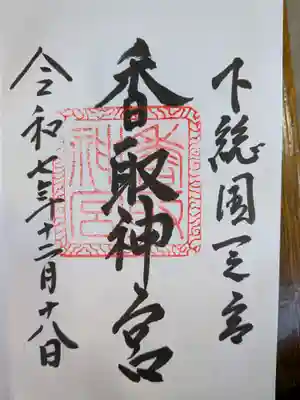 下総国一之宮
香取神宮
令和七年十二月十八日